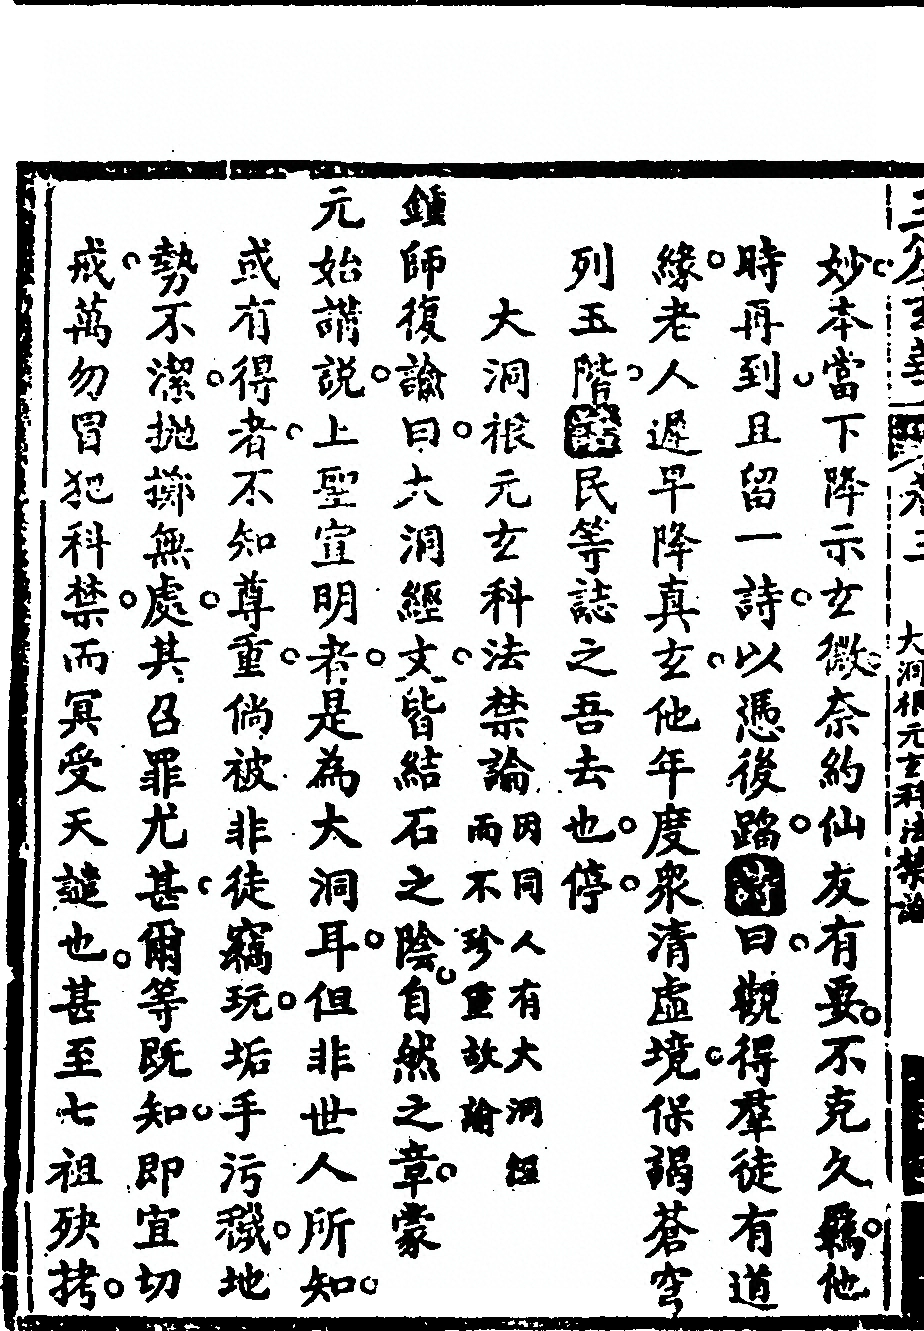 妙本當下降示玄微奈約仙友有要不克久羈他
時再到且留一詩以憑後蹈詩曰觀得羣徒有道
緣老人遲早降真玄他年度衆清虛境保謁蒼穹
列玉階民等誌之吾去也停
大洞根元玄科法禁論因同人有大洞經
而不珍重故諭
鍾師復諭曰大洞經文皆結石之陰自然之章蒙
元始講説上聖宣明者是為大洞耳但非世人所知
或有得者不知尊重倘被非徒竊玩垢手污穢地
勢不潔拋擲無處其召罪尤甚爾等既知即宜切
戒萬勿冒犯科禁而冥受天譴也甚至七祖殃拷
卷三 大洞根元玄科法禁論